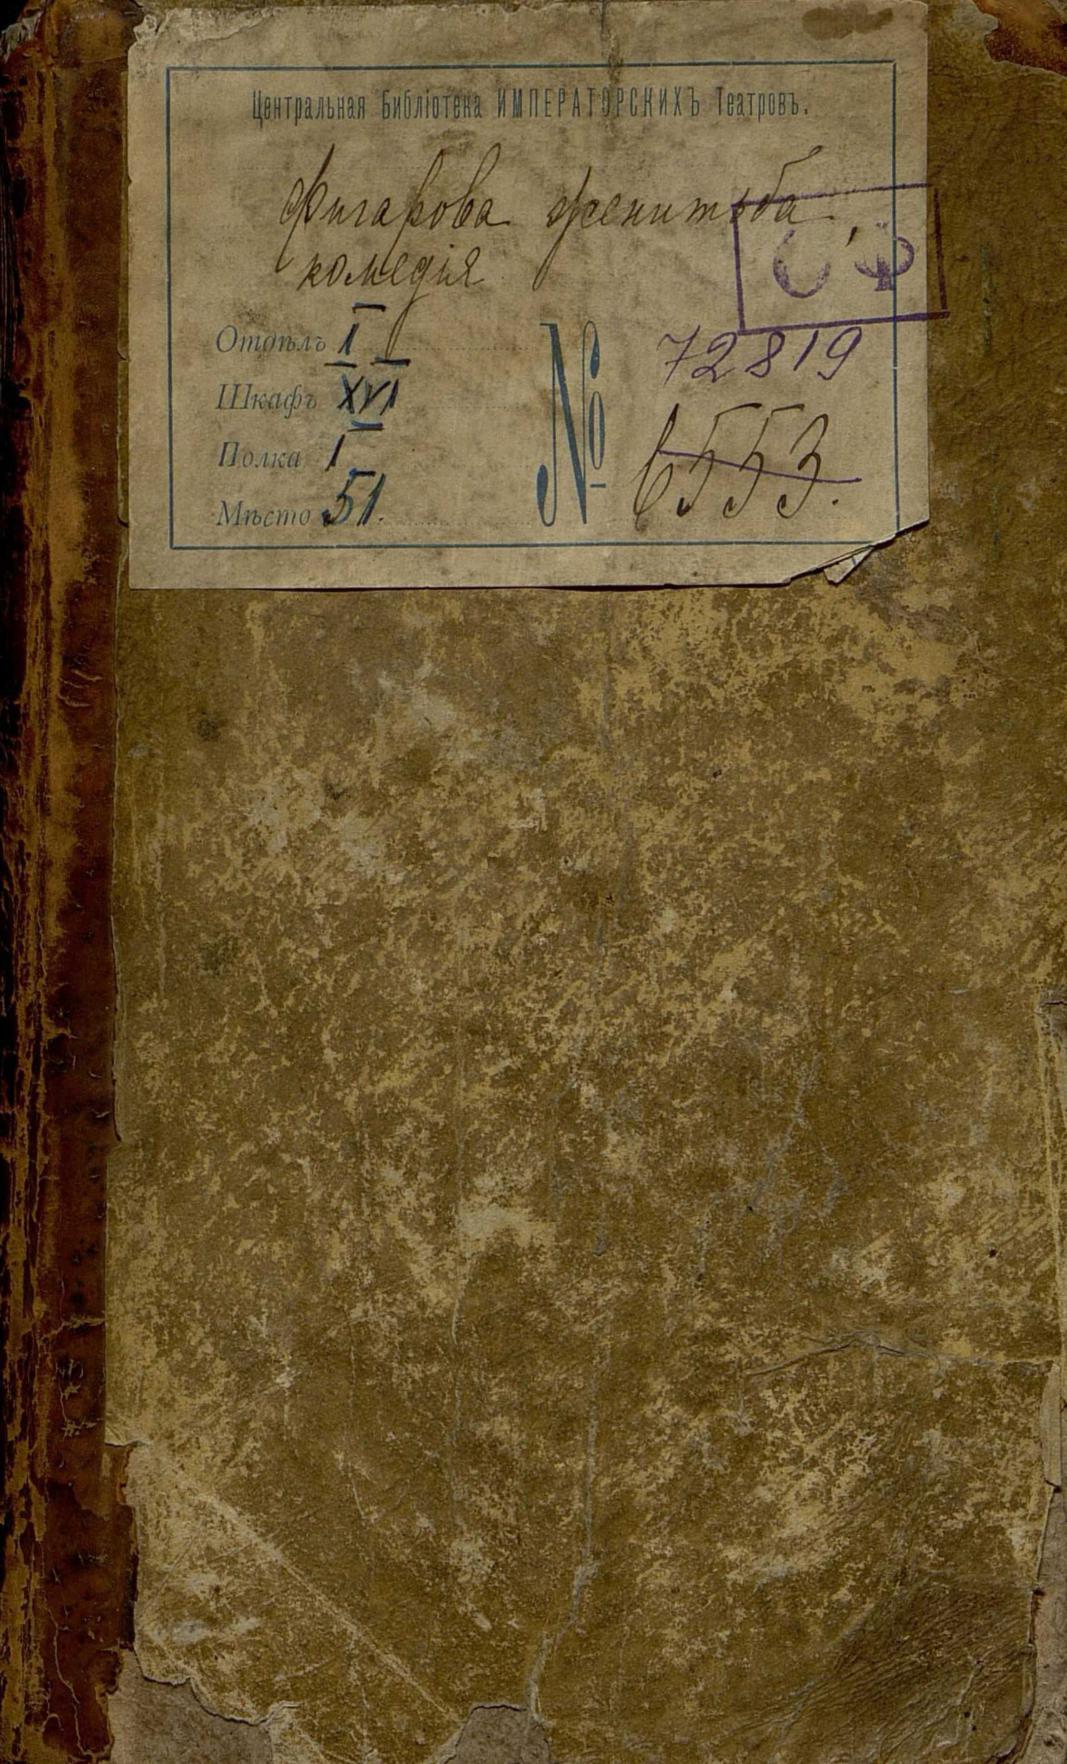 Центральная Библіотека ИМПЕРАТОРСКИХЪ Театровъ.
Фигарова женитьба
комедія
СФ
Отдѣлъ I
Шкафъ XVI
Полка I
Мѣсто 51.
№ 72819
6553.